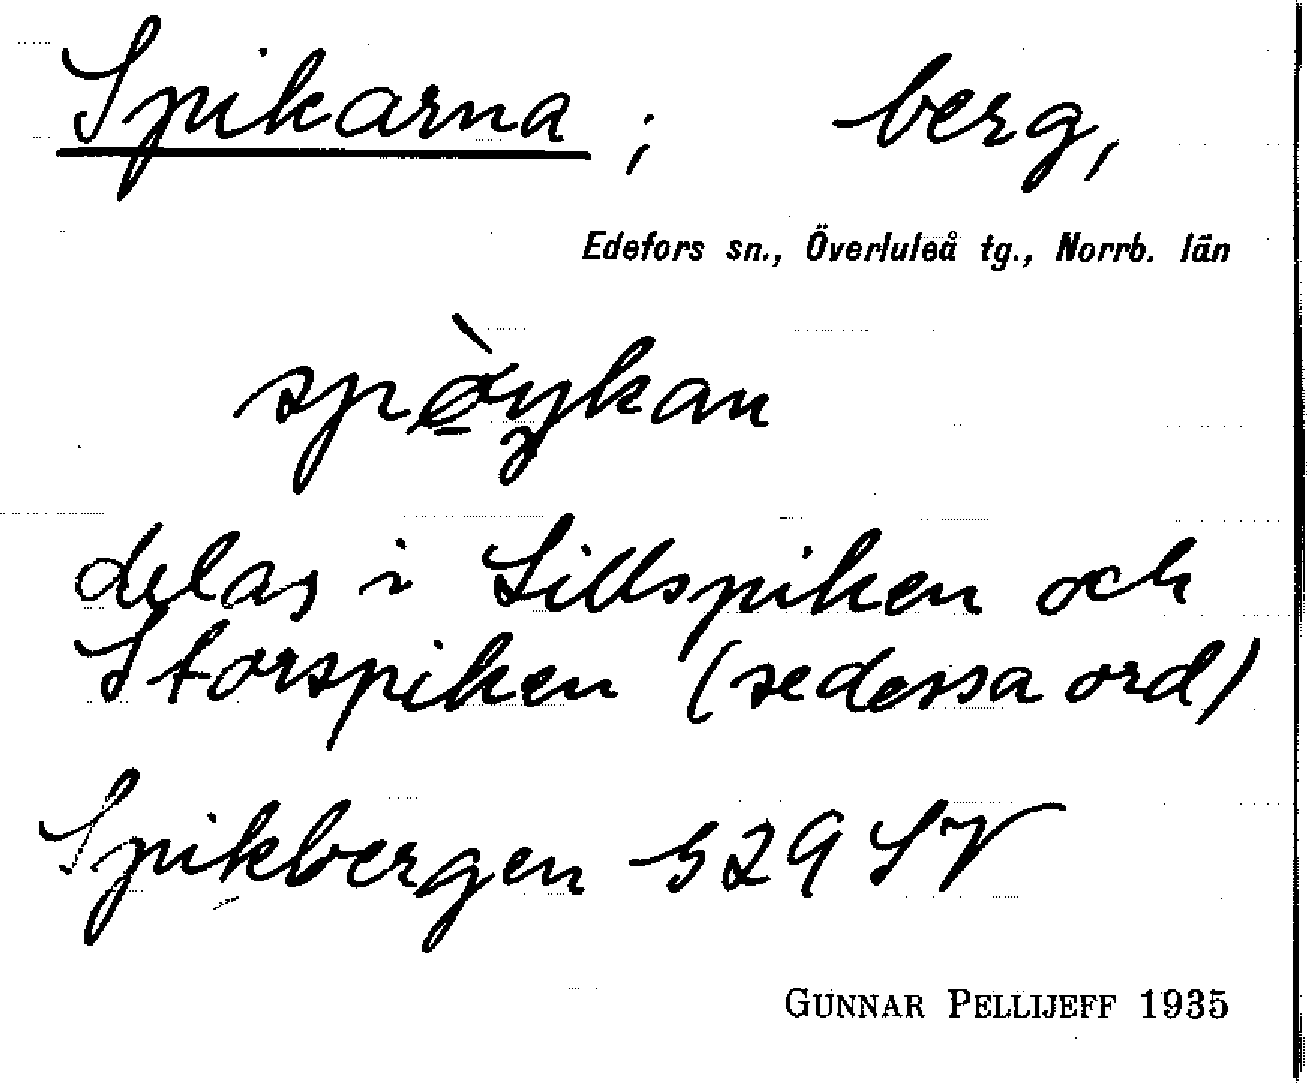 Spikarna ; berg,
Edefors sn., Överluleå tg., Norrb. län
delas i Lillspiken och
Storspiken (se dessa ord)
Spikbergen 529 SV
GUNNAR PELLIJEFF 1935